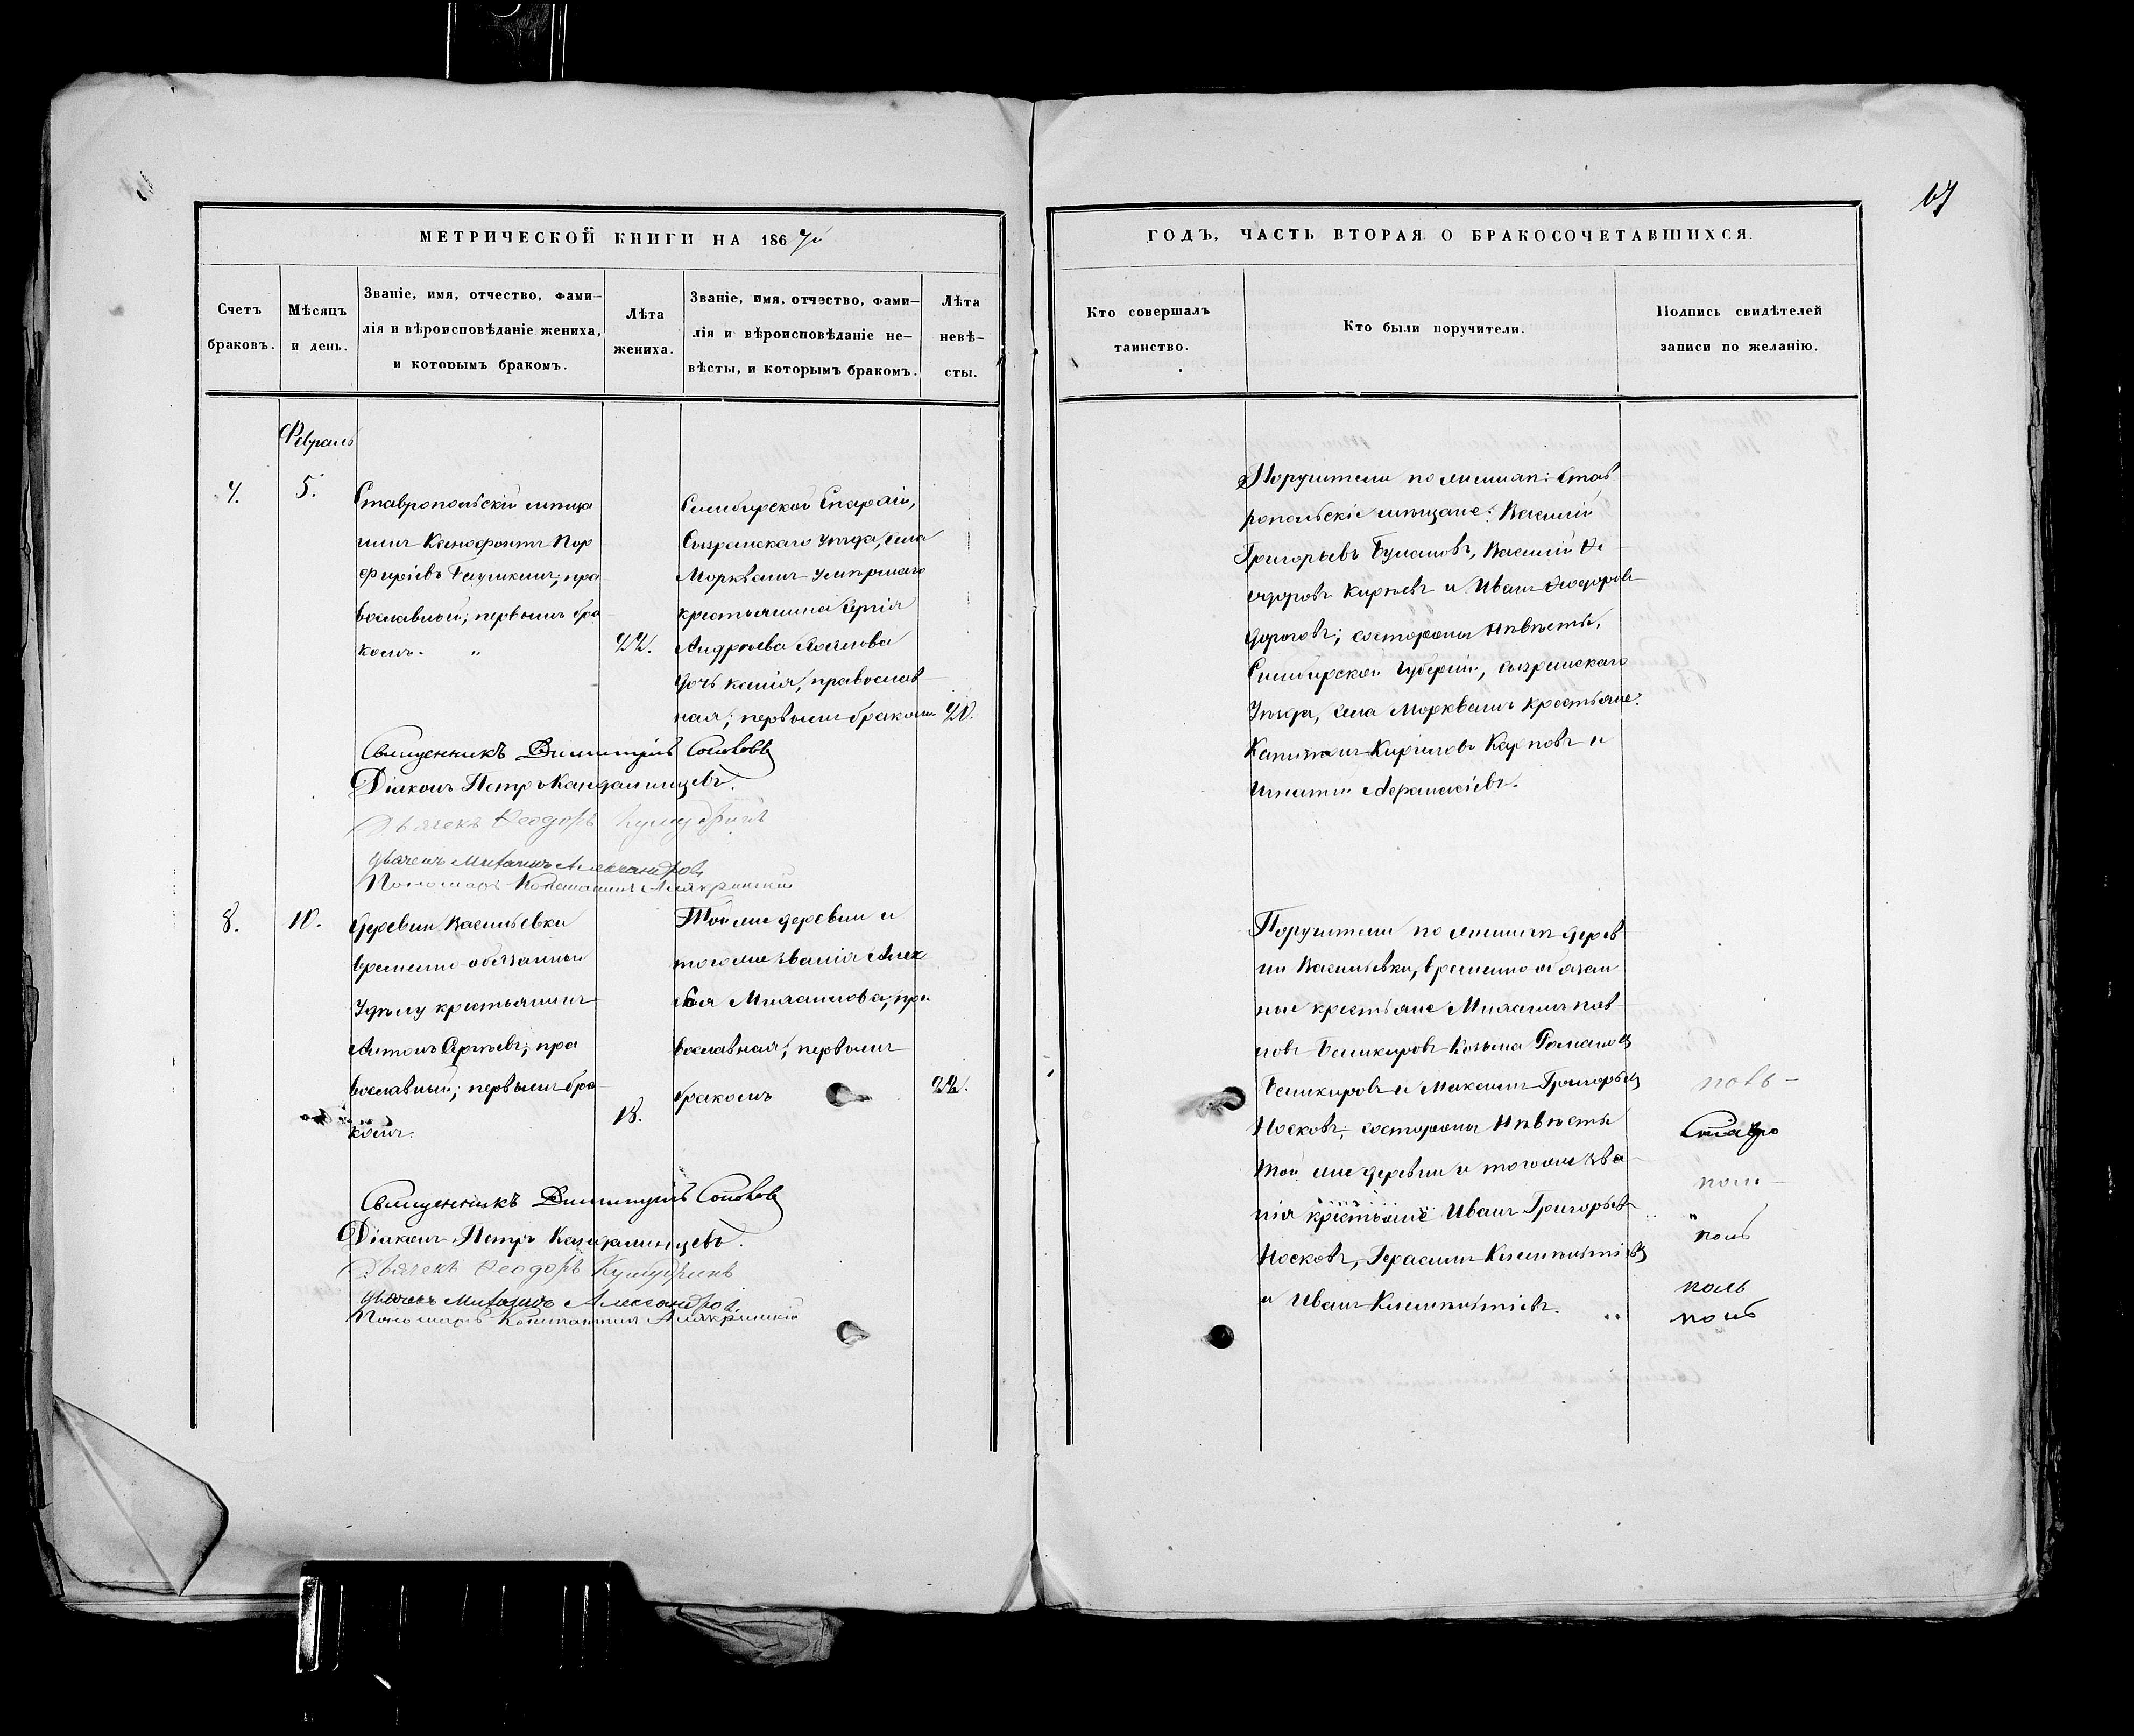 67
МЕТРИЧЕСКОЙ КНИГИ НА 1867й
ГОДЪ, ЧАСТЬ ВТОРАЯ О БРАКОСОЧЕТАВШИХСЯ.
Счетъ
браковъ.
Мѣсяцъ
и день.
Званіе, имя, отчество, фами-
лія и вѣроисповѣданіе жениха,
и которымъ бракомъ.
Лѣта
жениха.
Званіе, имя, отчество, фами-
лія и вѣроисповѣданіе не-
вѣсты, и которымъ бракомъ.
Лѣта
невѣ-
сты.
Кто совершалъ
таинство.
Кто были поручители.
Подпись свидѣтелей
записи по желанію.
Февраль
7.
5.
Ставропольскій мѣща
нинъ Ксенофонтъ Пор
фиріевъ пра
вославный; первымъ бра
комъ. "
22.
Симбирской Епархіи,
Сызранскаго уѣзда, села
Морквашъ умершаго
крестьянина Сергія
Андреева
дочь Ксенія, православ
ная; первымъ бракомъ
20.
Священникъ Димитрій Соловьевъ
Діаконъ Петръ Кандалинцевъ.
Дьячекъ Ѳеодоръ
Дьячекъ Михаилъ Александровъ
Пономарь Константинъ Алякринскій
Поручители по женихѣ: Став
ропольскіе мѣщане: Василій
Григорьевъ Василій Ѳе
одоровъ Кирѣевъ и Иванъ Ѳеодоровъ
Дороговъ; со стороны Невѣсты,
Симбирской Губерніи, сызранскаго
Уѣзда, села Морквашъ крестьяне:
Капитонъ Кириловъ Карповъ и
Игнатій Аѳанасьевъ.
8.
10.
Деревни Васильевки
временно-обязанный
Удѣлу крестьянинъ
Антонъ Сергѣевъ; пра
вославный; первымъ бра
комъ.
18.
Той же деревни и
того же званія
Михаилова, пра
вославная; первымъ
бракомъ
22.
Священникъ Димитрій Соловьевъ
Діаконъ Петръ Кандалинцевъ.
Дьячекъ Ѳеодоръ
Дьячекъ Михаилъ Александровъ
Пономарь Константинъ Алякринскій
Поручители по женихѣ дерев
ни Васильевки, временно обязан
ные крестьяне Михаилъ Пав
ловъ Башкировъ Козьма Романовъ
Башкировъ и Максимъ Григорьевъ
Носковъ; со стороны Невѣсты
той же деревни и того же зва
нія крестьяне Иванъ Григорьевъ
Носковъ, Герасимъ Климентьевъ
и Иванъ Климентьевъ.
Ставро
поль
поль